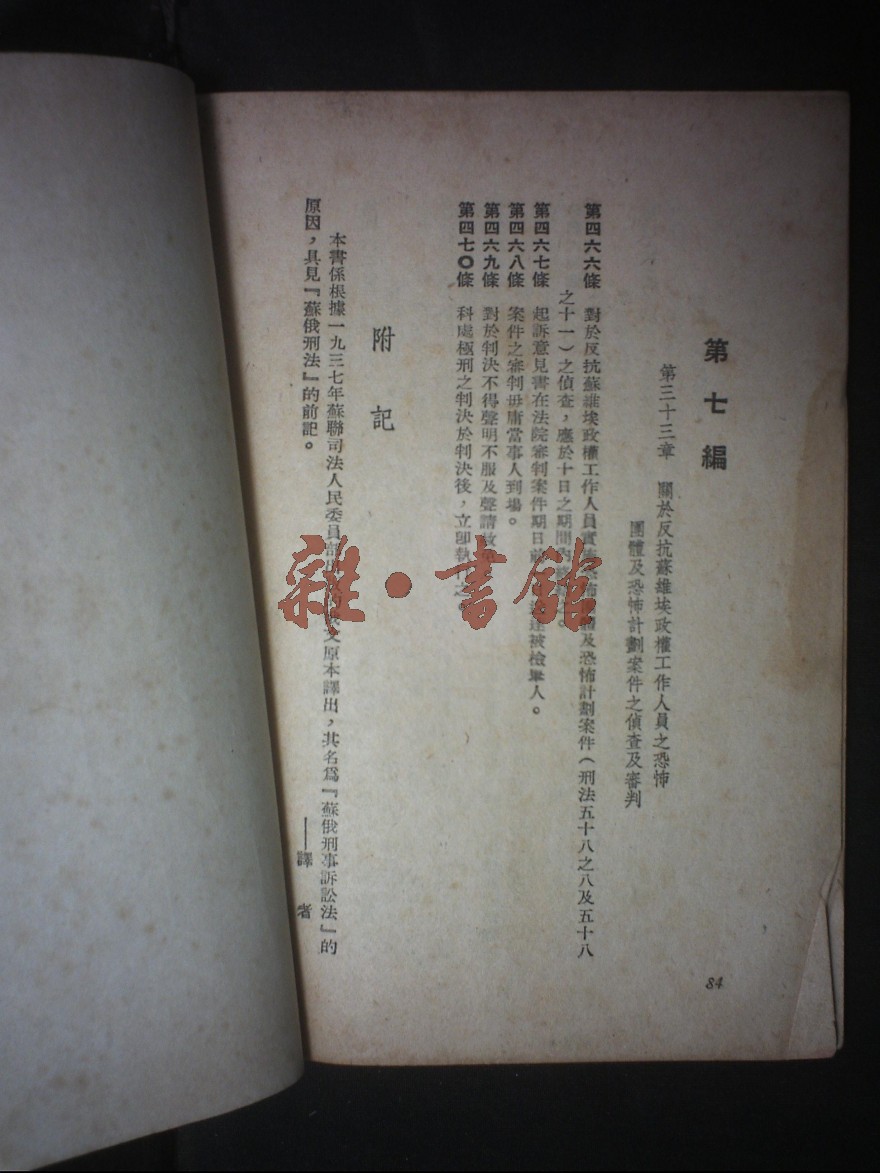 第七編
第三十三章 關於反抗蘇維埃政權工作人員之恐怖
團體及恐怖計劃案件之偵查及審判
第四六六條 對於反抗蘇維埃政權工作人員實施恐怖 及恐怖計劃案件（刑法五十八之八及五十八
之十一）之偵查，應於十日之期間內 之。
第四六七條 起訴意見書在法院審判案件期日前 達被檢舉人。
第四六八條 案件之審判毋庸當事人到場。
第四六九條 對於判決不得聲明不服及聲請
第四七〇條 科處極刑之判決於判決後，立即執行之。
附記
本書係根據一九三七年蘇聯司法人民委員 文原本譯出，其名爲『蘇俄刑事訴訟法』的
原因，具見『蘇俄刑法』的前記。
——譯者
84
雜·書館